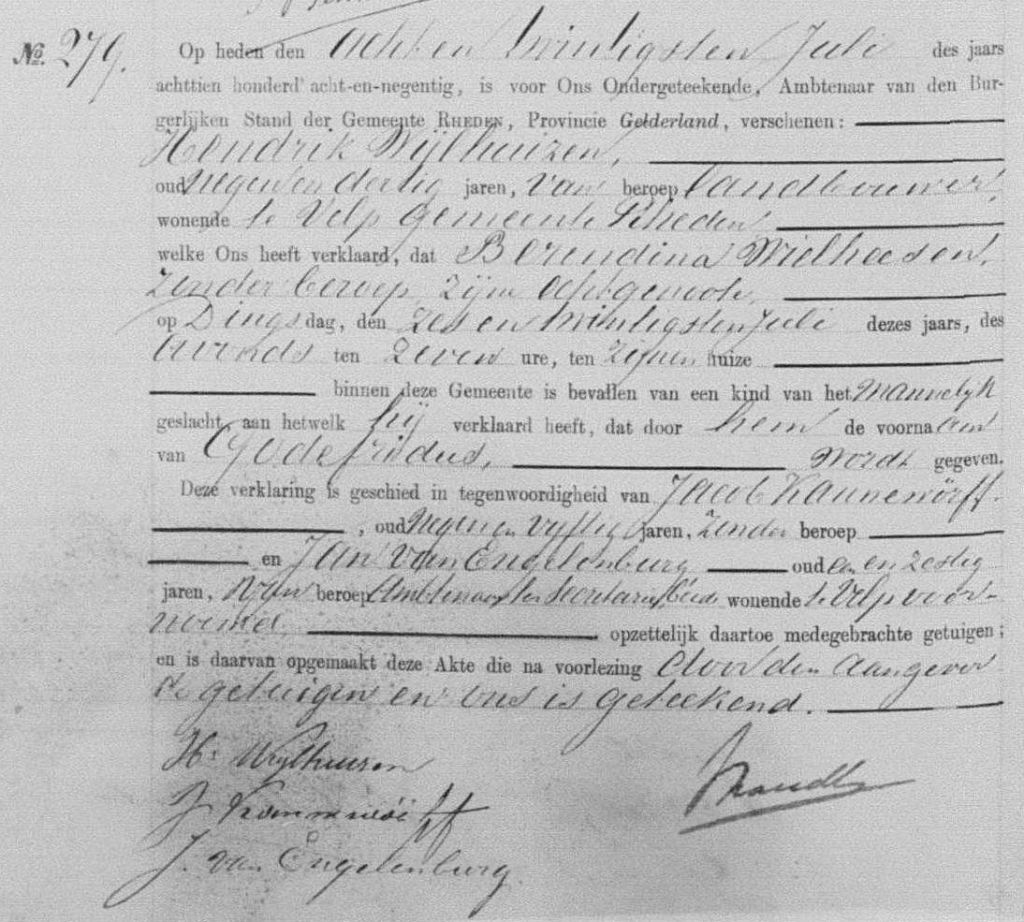 No. 279.
Op heden den Acht en twintigsten Juli des jaars
achttien honderd acht-en-negentig, is voor Ons Ondergeteekende, Ambtenaar van den Bur-
gerlijken Stand der Gemeente RHEDEN, Provincie Gelderland, verschenen:
Hendrik Wijlhuizen,
oud negen en dertig jaren, van beroep landbouwer,
wonende te Velp gemeente Rheden
welke Ons heeft verklaard, dat Berendina Wielheesen,
zonder beroep, zijne echtgenoote,
op Dingsdag, den zes en twintigsten Juli dezes jaars, des
avonds ten zeven ure, ten zijnen huize
binnen deze Gemeente is bevallen van een kind van het mannelijk
geslacht, aan hetwelk hij verklaard heeft, dat door hem de voornaam
van Godefridus, wordt gegeven.
Deze verklaring is geschied in tegenwoordigheid van Jacob Kannewörff
, oud negen en vijftig jaren, zonder beroep
en Jan van Engelenburg oud een en zestig
jaren, van beroep Ambtenaar ter Secretarie, beide wonende te Velp voor-
noemd opzettelijk daartoe medegebrachte getuigen;
en is daarvan opgemaakt deze Akte die na voorlezing door den aangever
de getuigen en ons is geteekend.
Hs Wijlhuizen
J Kannewörff
J. van Engelenburg